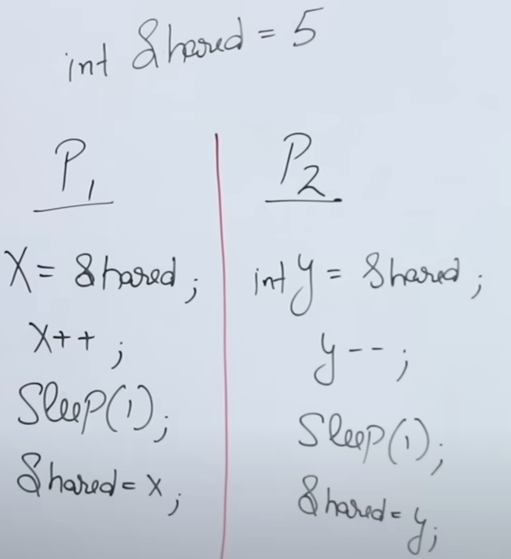 int Shared = 5
P1
X = Shared;
X++;
Sleep(1);
Shared = x;
P2
int y = Shared;
y--;
Sleep(1);
Shared = y;